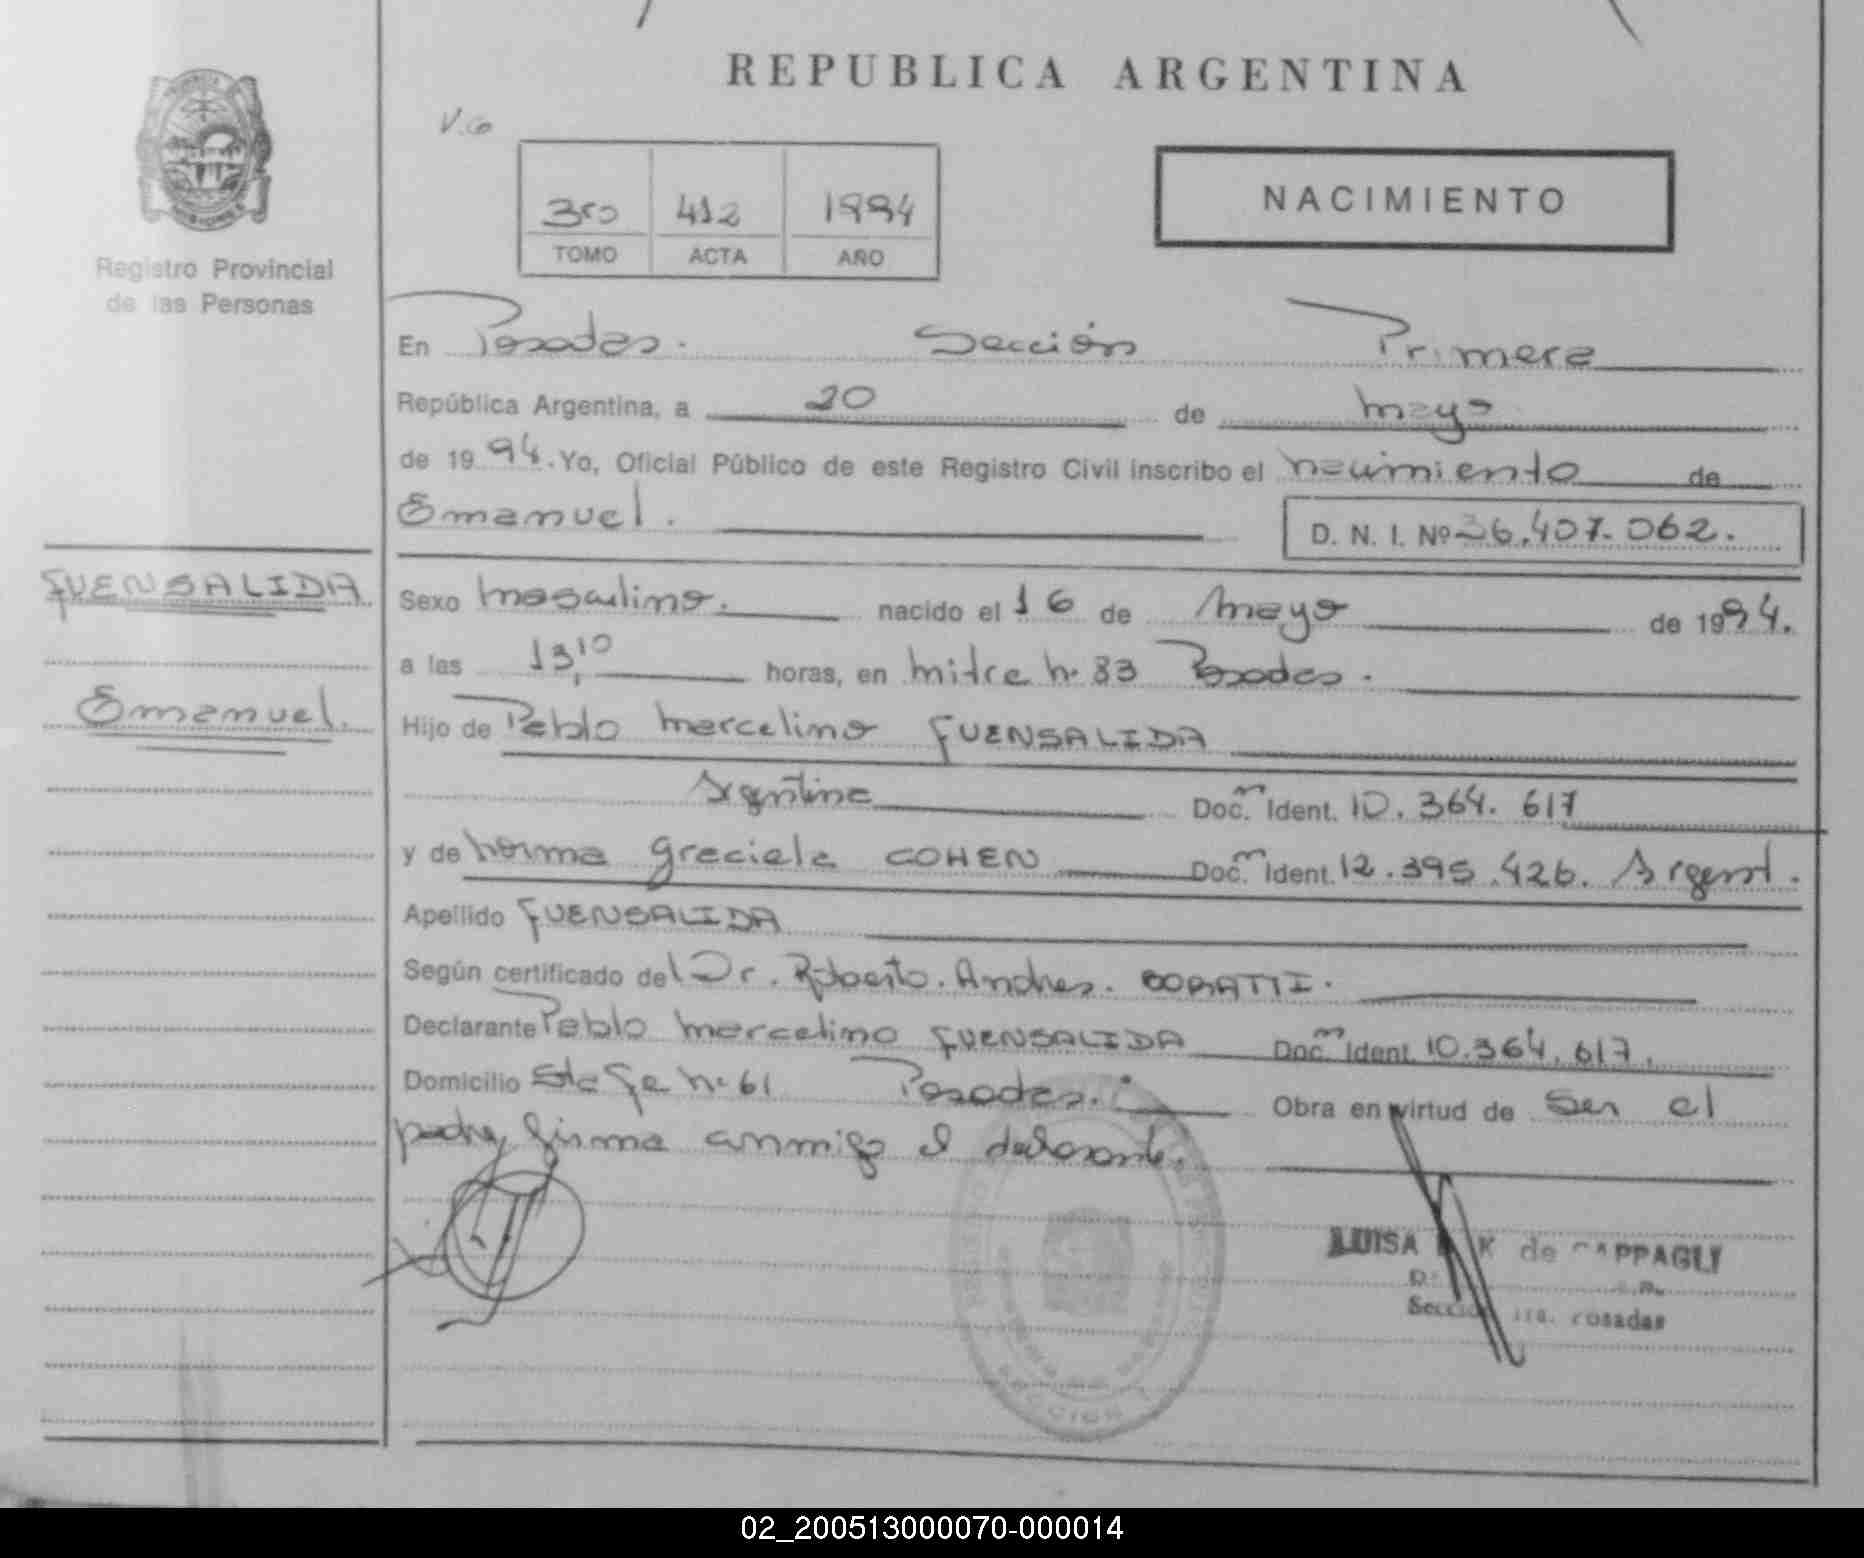 REPUBLICA ARGENTINA
V.G
3ro 412 1994
TOMO ACTA AÑO
NACIMIENTO
Registro Provincial
de las Personas
En Posadas. Sección Primera
República Argentina, a 20 de mayo
de 1994. Yo, Oficial Público de este Registro Civil inscribo el nacimiento de
Emanuel.
D. N. I. Nº 36.407.062.
FUENSALIDA
Emanuel.
Sexo masculino. nacido el 16 de mayo de 1994.
a las 13,10 horas, en mitre n. 83 Posadas.
Hijo de Pablo marcelino FUENSALIDA
Argentino Doc. Ident. 10.364.617
y de norma graciela COHEN Doc. Ident. 12.395.426. Argent.
Apellido FUENSALIDA
Según certificado del Dr. Roberto. Andres.
Declarante Pablo marcelino FUENSALIDA Doc. Ident. 10.364.617.
Domicilio Sta Fe n. 61 Posadas. Obra en virtud de ser el
padre, firma conmigo el declarante.
LUISA K de CAPPAGLI
Sección 1ra. Posadas
SECCION 1
02_200513000070-000014